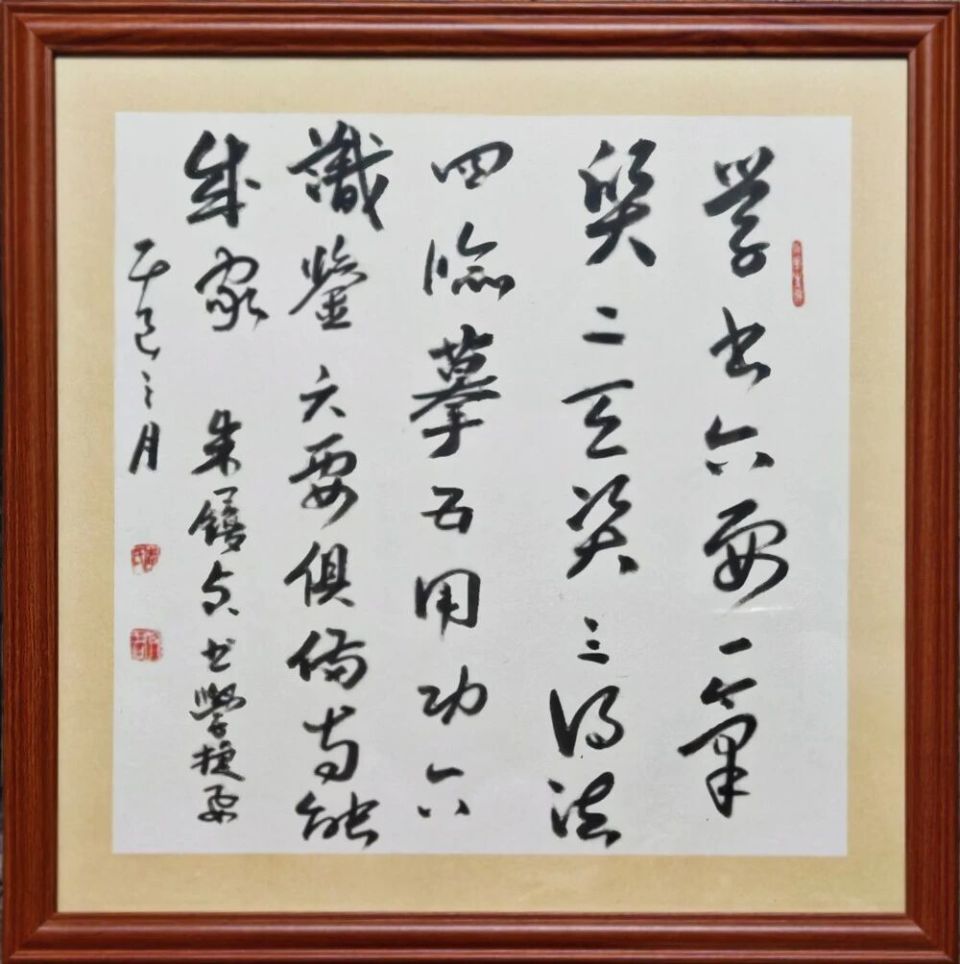 學书六要一氣
質二天资三得法
四臨摹五用功六
識鑒六要俱備方能
成家 朱履贞书學捷要
巳三月